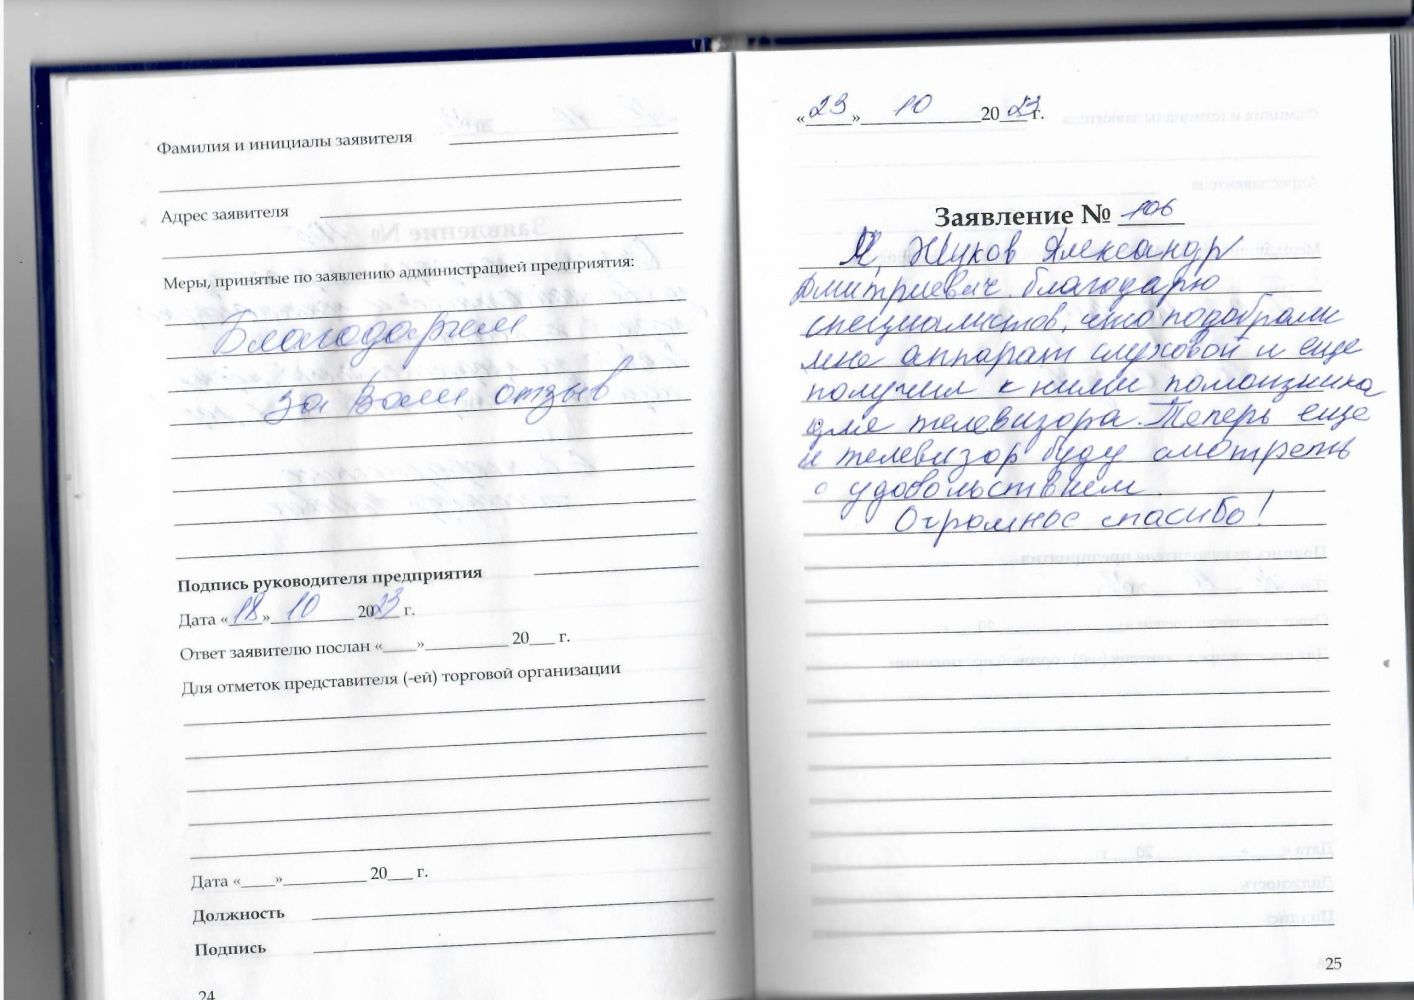 Фамилия и инициалы заявителя
Адрес заявителя
Меры, принятые по заявлению администрацией предприятия:
Благодарим
за Ваш отзыв
Подпись руководителя предприятия
Дата «18» 10 2023 г.
Ответ заявителю послан «____»__________ 20___ г.
Для отметок представителя (-ей) торговой организации
Дата «____»__________ 20___ г.
Должность
Подпись
24
«23» 10 2023 г.
Заявление № 106
Я, Жуков Александр
Дмитриевич благодарю
специалистов, что подобрали
мне аппарат слуховой и еще
получил к ним помощника
для телевизора. Теперь еще
и телевизор буду смотреть
с удовольствием.
Огромное спасибо!
25